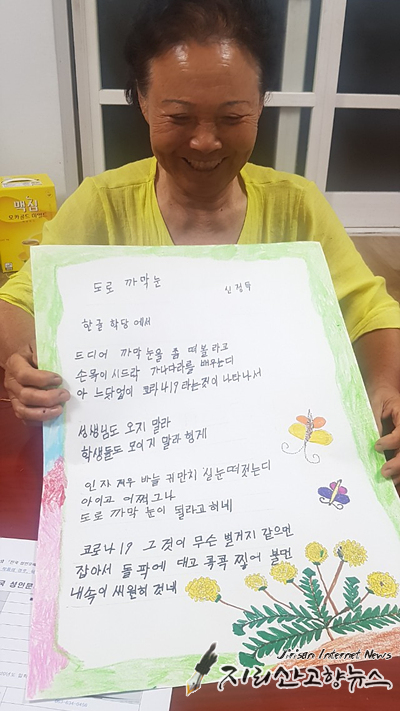 도로 까막눈
신점득
한글 학당에서
드디어 까막눈을 좀 떠볼라코
손목이 시드락 가나다라를 배우는디
아 느닷없이 코라나19 라는것이 나타나서
선생님도 오지 말라
학생들도 모이기 말라 헝게
인자 겨우 바늘 귀만히 실눈떠젓는디
아이고 어쩌그나
도로 까막눈이 될라고 허네
코로나19 그것이 무슨 벌거지 같으면
잡아서 돌팍에 대고 콕콕 찧어 불먼
내속이 씨원허 것네
맥심
모카골드 마일드
Jirisan Internet News
지리산고향뉴스